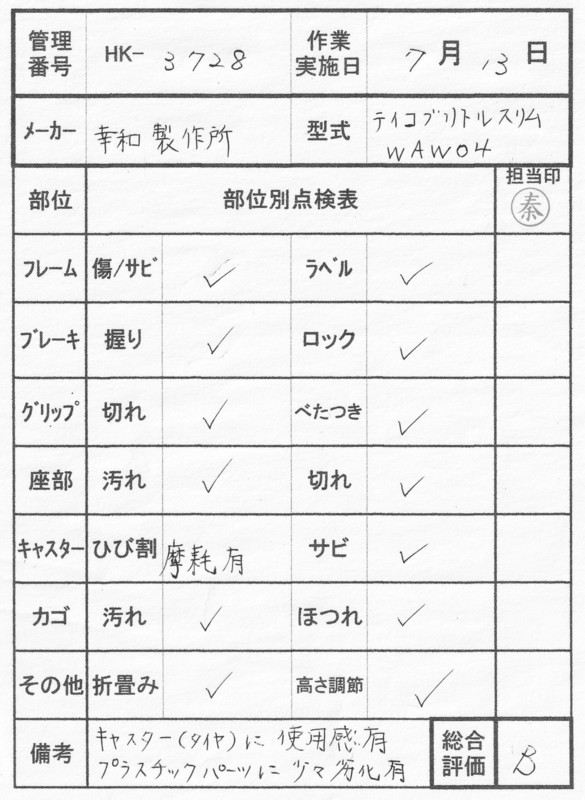 管理番号 HK- 3728 作業実施日 7月13日
メーカー 幸和製作所 型式 テイコブリトルスリム WAW04
部位 部位別点検表 担当印 秦
フレーム 傷/サビ ✓ ラベル ✓
ブレーキ 握り ✓ ロック ✓
グリップ 切れ ✓ べたつき ✓
座部 汚れ ✓ 切れ ✓
キャスター ひび割 摩耗有 サビ ✓
カゴ 汚れ ✓ ほつれ ✓
その他 折畳み ✓ 高さ調節 ✓
備考 キャスター(タイヤ)に使用感有
プラスチックパーツに少々劣化有
総合評価 B